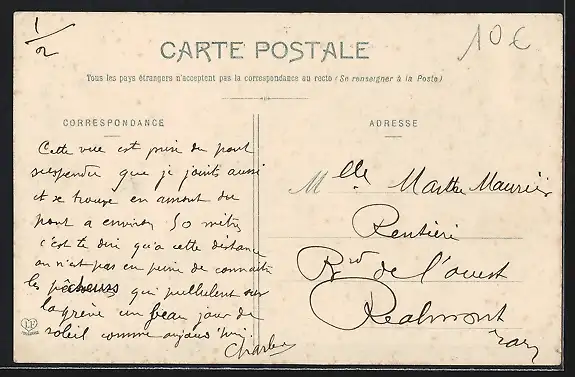 1/2
10€
CARTE POSTALE
Tous les pays étrangers n'acceptent pas la correspondance au recto (Se renseigner à la Poste)
CORRESPONDANCE
Cette vue est prise du pont
suspendu que je joints aussi
et se trouve en amont du
pont a environ 50 mètres
c'est te dire qu'a cette distance
on n'est pas en peine de connaitre
les pêcheurs qui pullulent sur
la grève un beau jour de
soleil comme aujourd'hui.
Charles
ADRESSE
Mlle. Marthe Maurier
Rentière
Bvd de l'ouest
Réalmont
Tarn